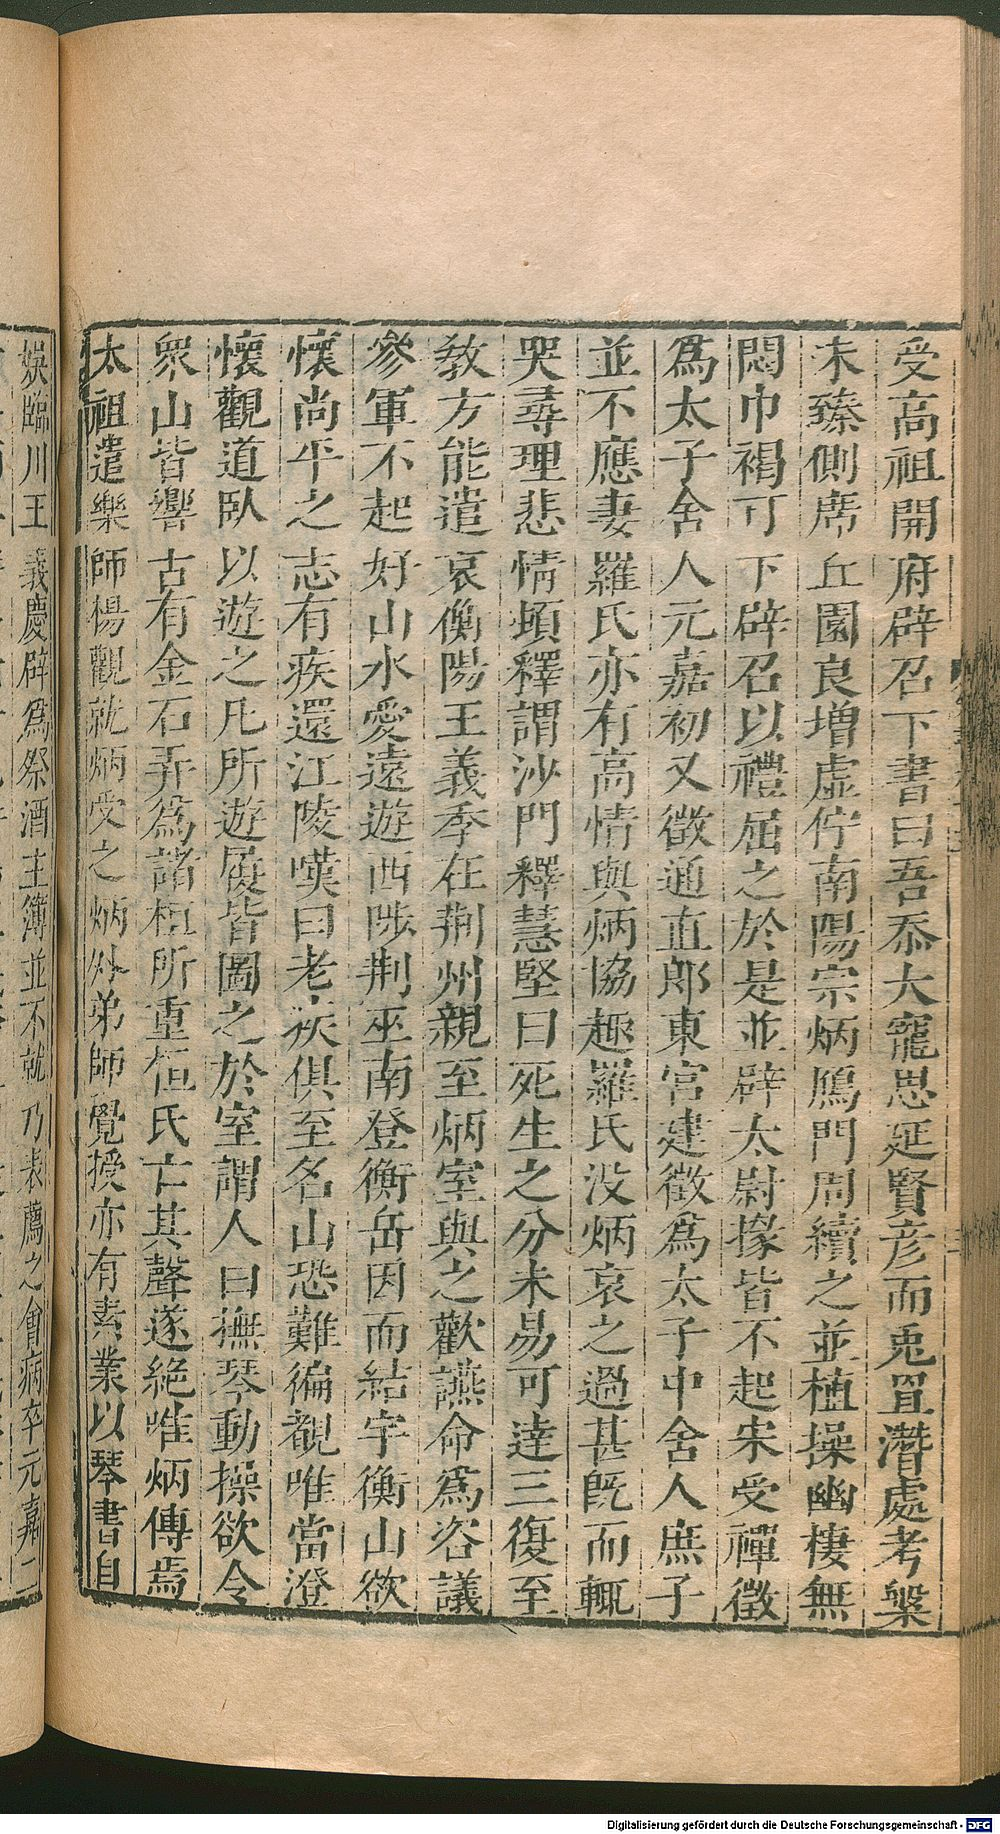 受高祖開府辟召下書曰吾忝大寵思延賢彥而兎罝潛處考槃
未臻側席丘園良增虛佇南陽宗炳鴈門周續之並植操幽棲無
悶巾褐可下辟召以禮屈之於是並辟太尉掾皆不起宋受禪徵
爲太子舍人元嘉初又徵通直郎東宮建徵爲太子中舍人庶子
並不應妻羅氏亦有高情與炳協趣羅氏没炳哀之過甚旣而輒
哭尋理悲情頓釋謂沙門釋慧堅曰死生之分未易可達三復至
敎方能遣哀衡陽王義季在荆州親至炳室與之歡讌命爲咨議
參軍不起好山水愛遠遊西陟荆巫南登衡岳因而結宇衡山欲
懷尚平之志有疾還江陵嘆曰老疾俱至名山恐難徧覩唯當澄
懷觀道臥以遊之凡所遊履皆圖之於室謂人曰撫琴動操欲令
衆山皆響古有金石弄爲諸桓所重桓氏亡其聲遂絶唯炳傳焉
太祖遣樂師楊觀就炳受之炳外弟師覺授亦有素業以琴書自
娛臨川王義慶辟爲祭酒主簿並不就乃表薦之會病卒元嘉二
Digitalisierung gefördert durch die Deutsche Forschungsgemeinschaft - DFG